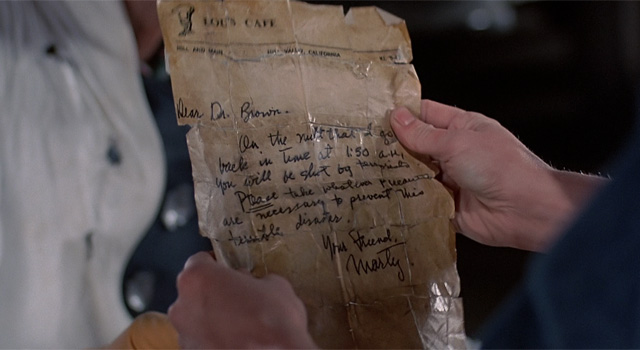 LOU'S CAFE
HILL VALLEY, CALIFORNIA
Dear Dr. Brown,
On the night that I go
back in time at 1:30 A.M.
you will be shot by
Please take whatever
are necessary to prevent this
terrible disaster.
Your Friend,
Marty.